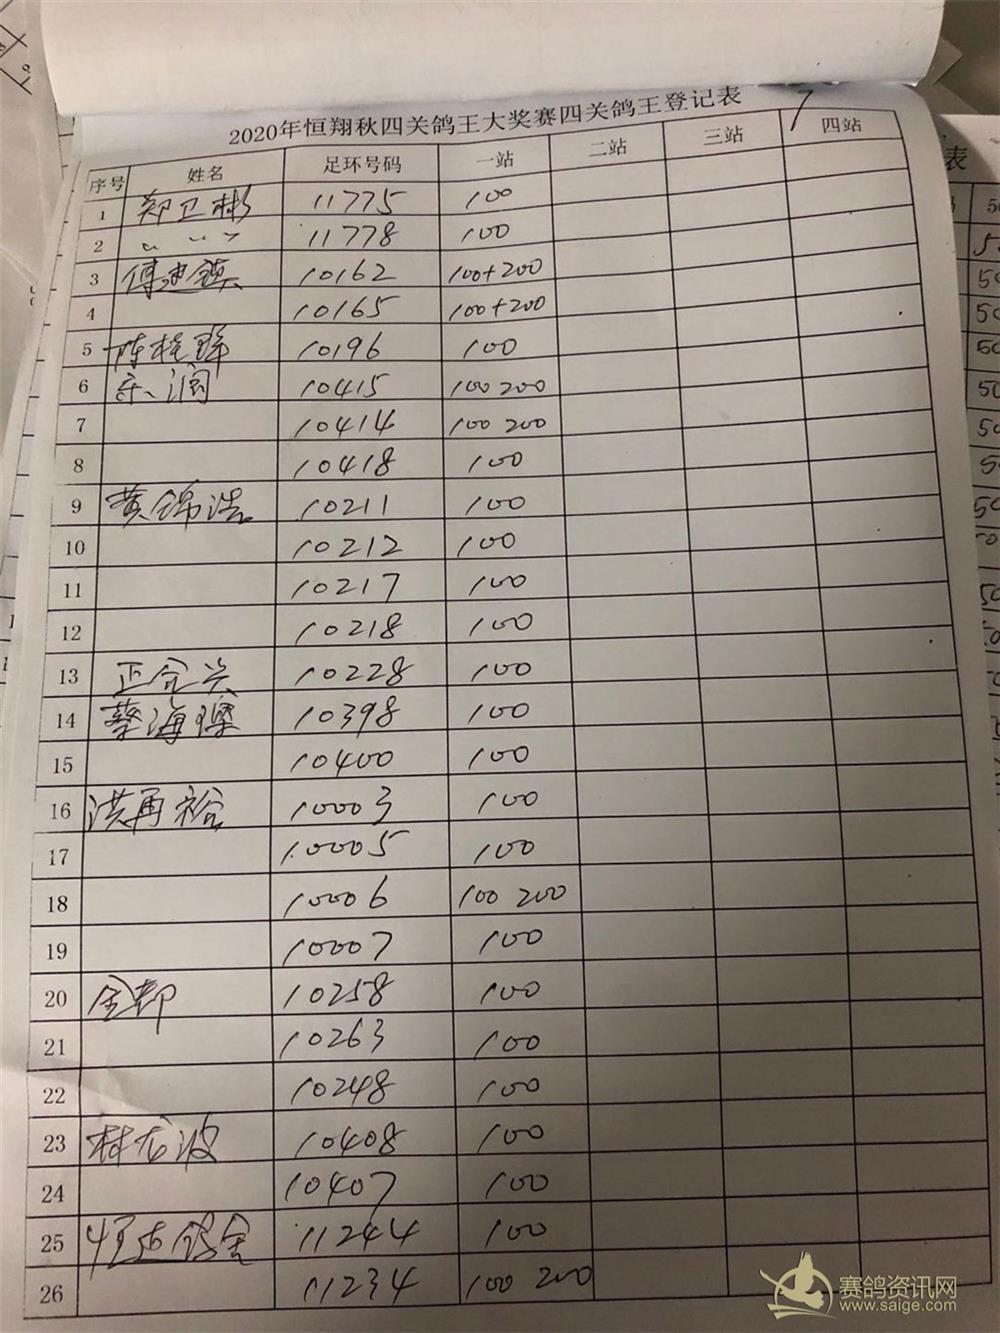 2020年恒翔秋四关鸽王大奖赛四关鸽王登记表
7
序号 姓名 足环号码 一站 二站 三站 四站
1 郑卫彬 11775 100
2 〃 〃 〃 11778 100
3 傅 10162 100+200
4 10165 100+200
5 陈 10196 100
6 10415 100 200
7 10414 100 200
8 10418 100
9 黄锦浩 10211 100
10 10212 100
11 10217 100
12 10218 100
13 正合兴 10228 100
14 蔡海 10398 100
15 10400 100
16 洪再裕 10003 100
17 10005 100
18 10006 100 200
19 10007 100
20 10258 100
21 10263 100
22 10248 100
23 林龙波 10408 100
24 10407 100
25 11244 100
26 11234 100 200
表
赛鸽资讯网
www.saige.com